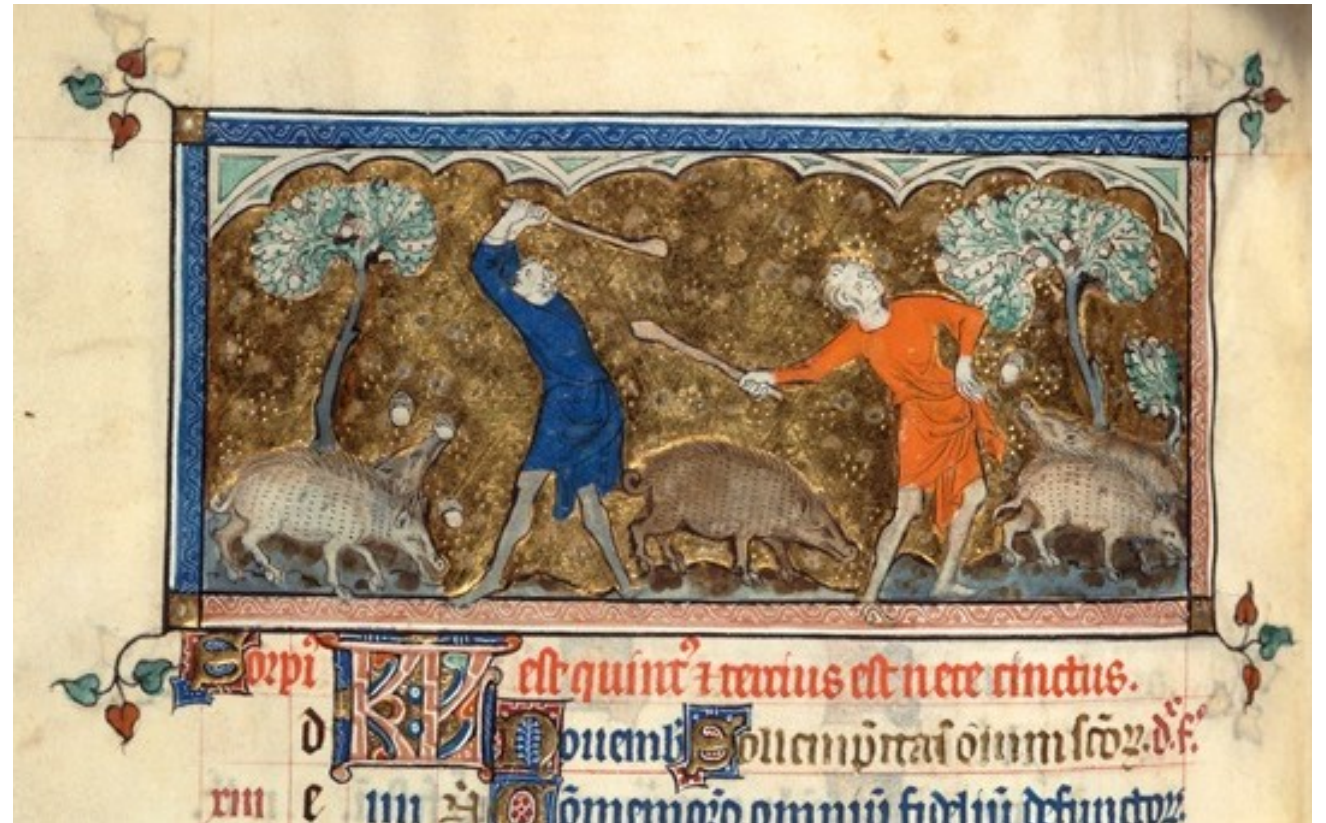 Scorpi᷒ est quint᷒ ⁊ tercius est nece cinctus.
d KL Nouemb̃ Sollempnitas om̃ium sc̃oꝝ. d. f.
xiii e iiii N̄ Cõmemoꝛo omniũ fideliũ defunctoꝝ.